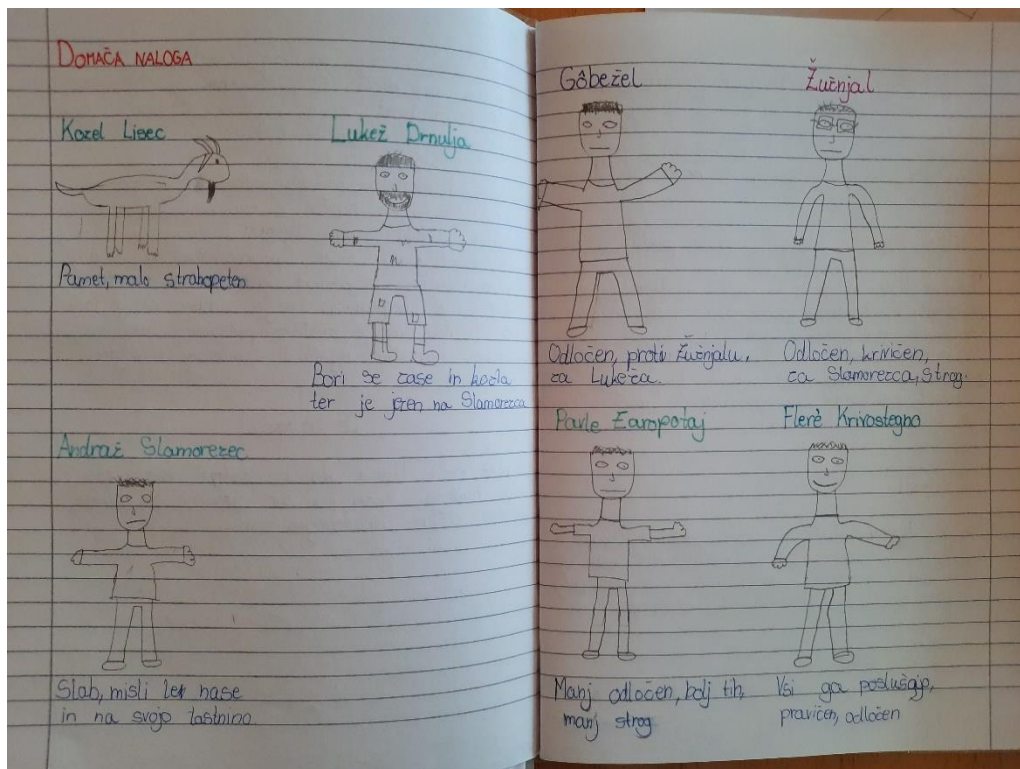 DOMAČA NALOGA
Kozel Lisec
Pamet, malo strahopeten
Lukež Drnulja
Bori se zase in kozla
ter je jezen na Slamorezca
Andraž Slamorezec
Slab, misli le nase
in na svojo lastnino.
Gôbežel
Odločen, proti Žučnjalu,
za Lukeža.
Žučnjal
Odločen, krivičen,
za Slamorezca, strog.
Pavle Zaropotaj
Manj odločen, bolj tih,
manj strog
Flerè Krivostegno
Vsi ga poslušajo,
pravičen, odločen